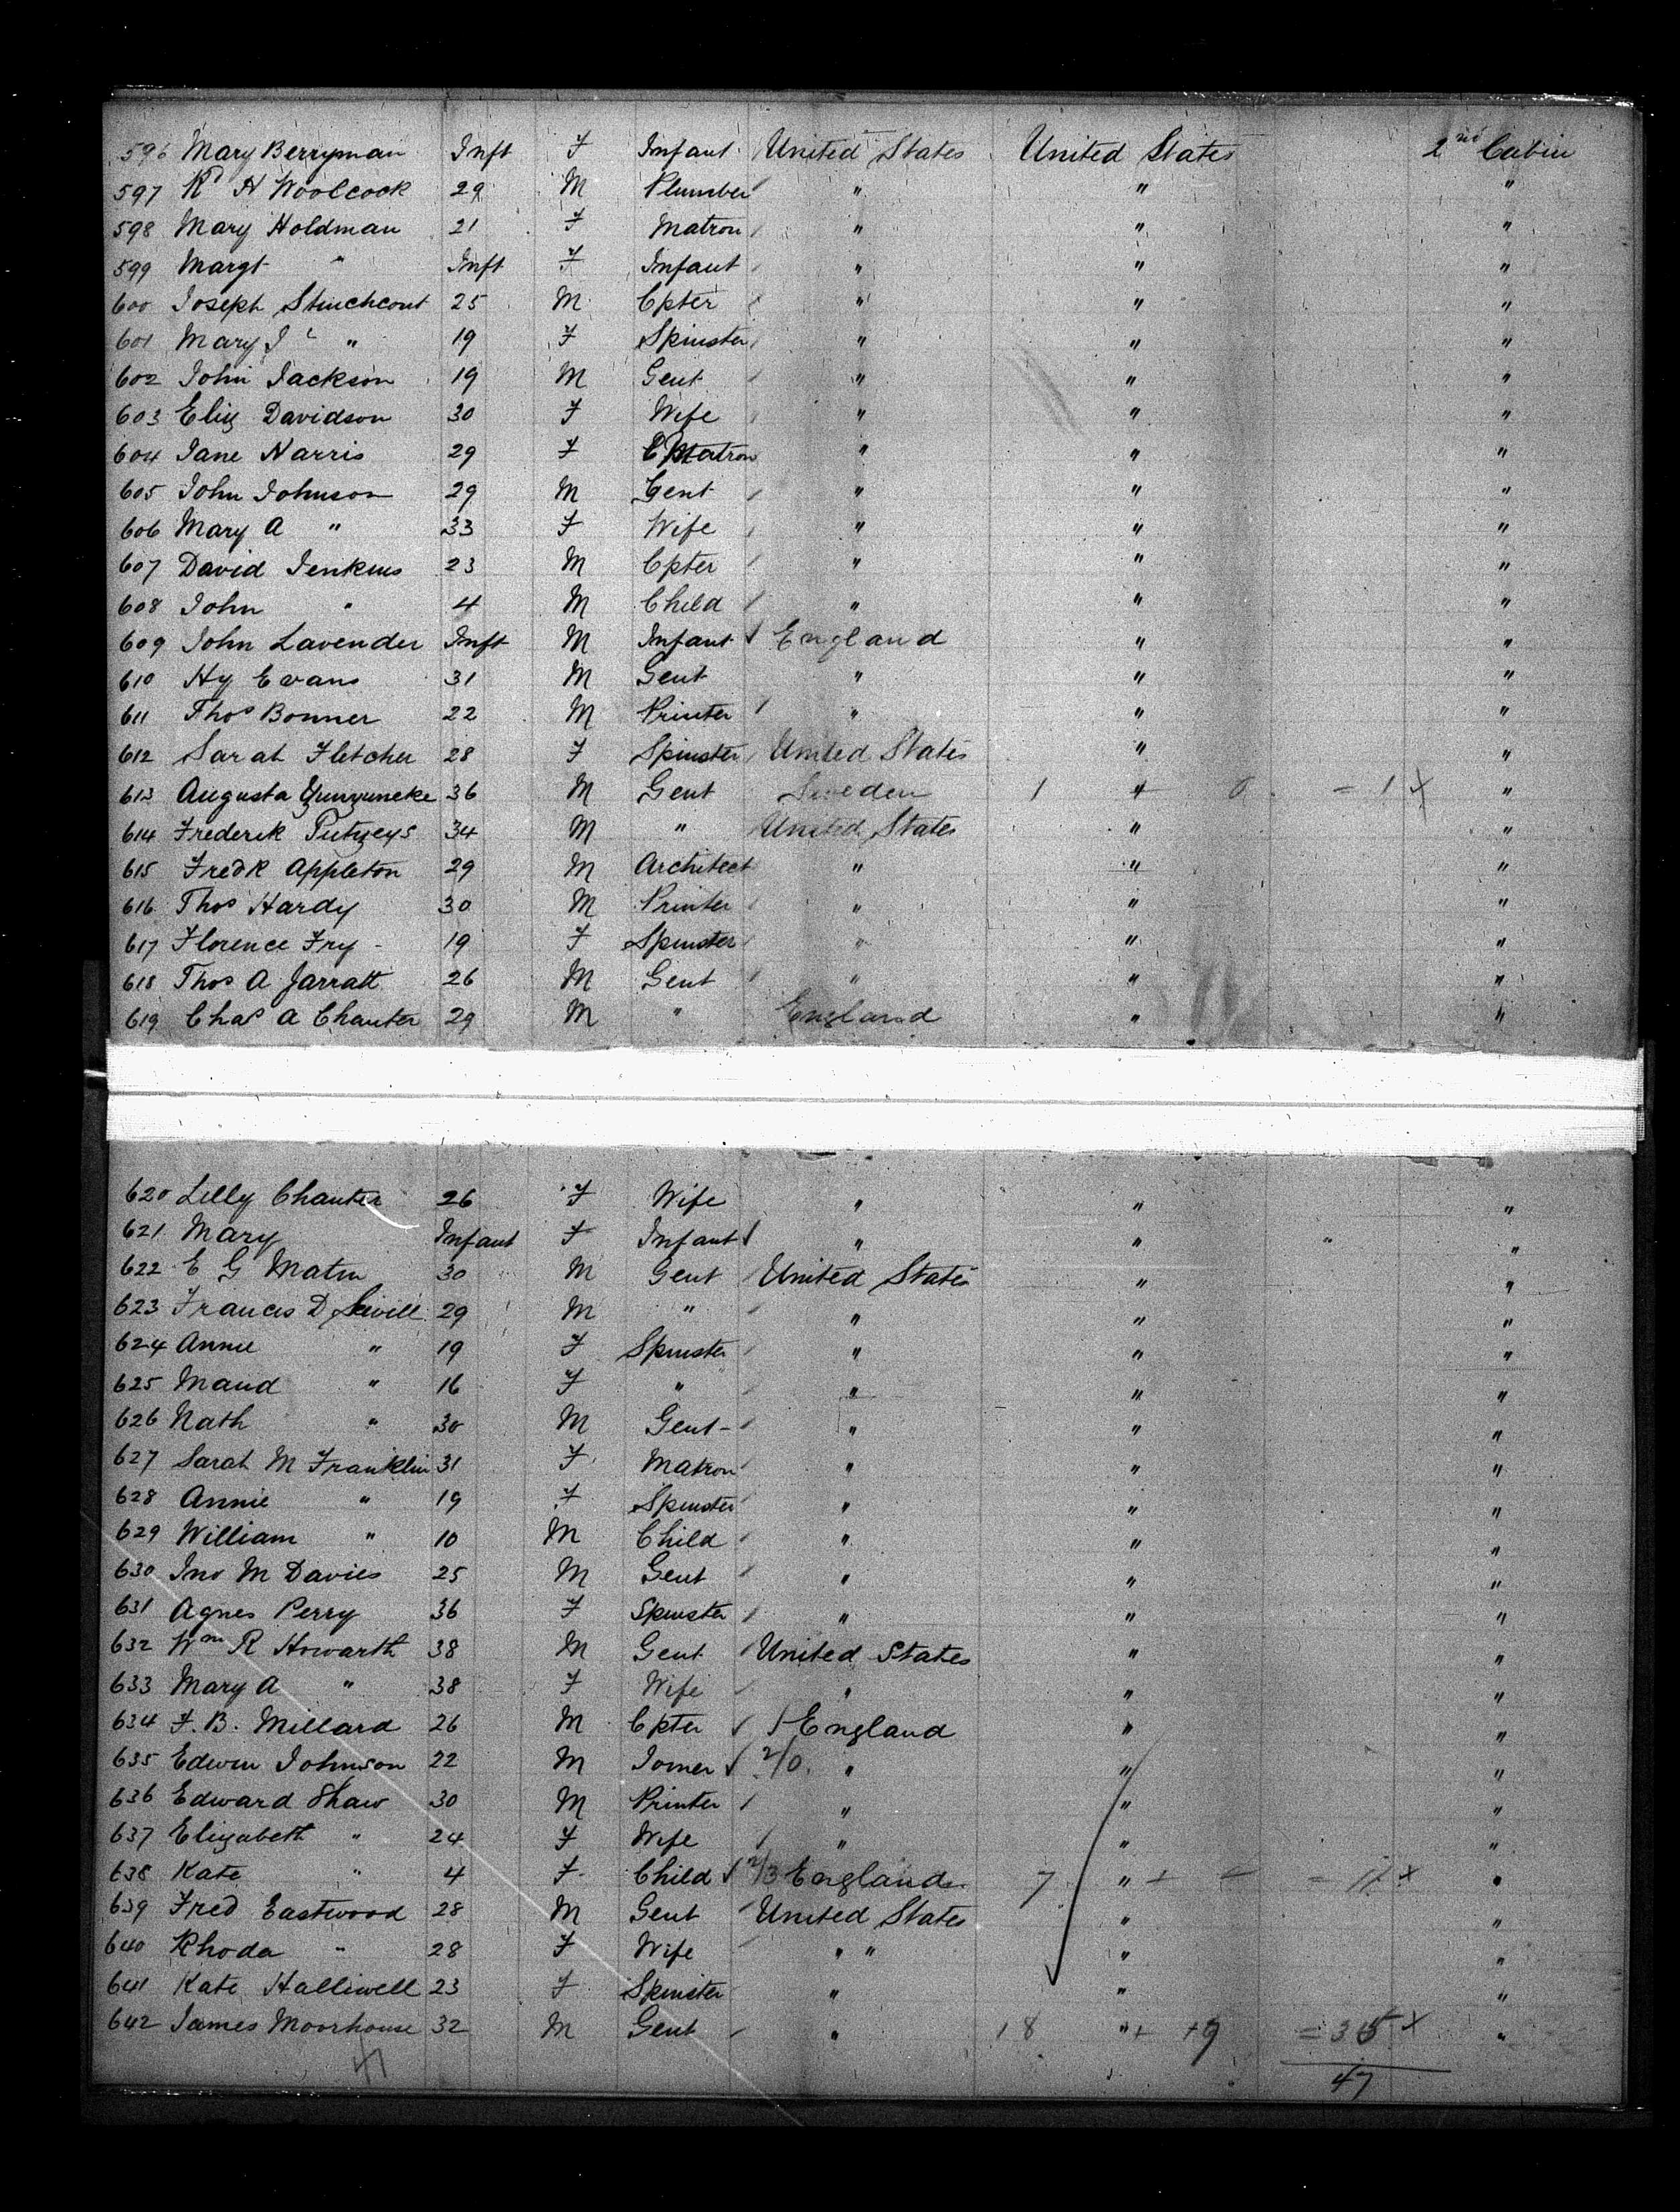 596 Mary Berryman Inft F Infant United States United States 2nd Cabin
597 Rd H Woolcock 29 M Plumber " " "
598 Mary Holdman 21 F Matron " " "
599 Margt " Inft F Infant " " "
600 Joseph 25 M Cpter " " "
601 Mary J " 19 F Spinster " " "
602 John Jackson 19 M Gent " " "
603 Eliz Davidson 30 F Wife " " "
604 Jane Narris 29 F Matron " " "
605 John Johnson 29 M Gent " " "
606 Mary A " 33 F Wife " " "
607 David Jenkins 23 M Cpter " " "
608 John " 4 M Child " " "
609 John Lavender Inft M Infant England " "
610 Hy Evans 31 M Gent " " "
611 Thos Bonner 22 M Printer " " "
612 Sarah Fletcher 28 F Spinster United States " "
613 Augusta 36 M Gent Sweden 1 " 0 = 1 x "
614 Frederik Putzeys 34 M " United States " "
615 Fredk Appleton 29 M Architect " " "
616 Thos Hardy 30 M Printer " " "
617 Florence Fry 19 F Spinster " " "
618 Thos A Jarratt 26 M Gent " " "
619 Chas A Chanter 29 M " England " "
620 Lilly Chanter 26 F Wife " " "
621 Mary Infant F Infant " " " "
622 E G Matin 30 M Gent United States " "
623 Francis D 29 M " " " "
624 Annie " 19 F Spinster " " "
625 Maud " 16 F " " " "
626 Nath " 30 M Gent " " "
627 Sarah M Franklin 31 F Matron " " "
628 Annie " 19 F Spinster " " "
629 William " 10 M Child " " "
630 Jno M Davies 25 M Gent " " "
631 Agnes Perry 36 F Spinster " " "
632 Wm R Howarth 38 M Gent United States " "
633 Mary A " 38 F Wife " " "
634 F. B. Millard 26 M Cpter England " "
635 Edwin Johnson 22 M Joiner 2/0 " " "
636 Edward Shaw 30 M Printer " " "
637 Elizabeth " 24 F Wife " " "
638 Kate " 4 F Child 2/3 England 7 " + = 11 x "
639 Fred Eastwood 28 M Gent United States " "
640 Rhoda " 28 F Wife " " " "
641 Kate Halliwell 23 F Spinster " " "
642 James Moorhouse 32 M Gent " 18 " + = 35 x "
47